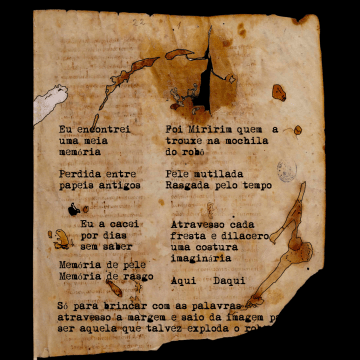 Eu encontrei
uma meia
memória
Perdida entre
papeis antigos
Eu a cacei
por dias
sem saber
Memória de pele
Memória de rasgo
Foi Miririm quem a
trouxe na mochila
do robô
Pele mutilada
Rasgada pelo tempo
Atravesso cada
fresta e dilacero
uma costura
imaginária
Aqui Daqui
Só para brincar com as palavras
atravesso a margem e saio da imagem
ser aquela que talvez exploda o